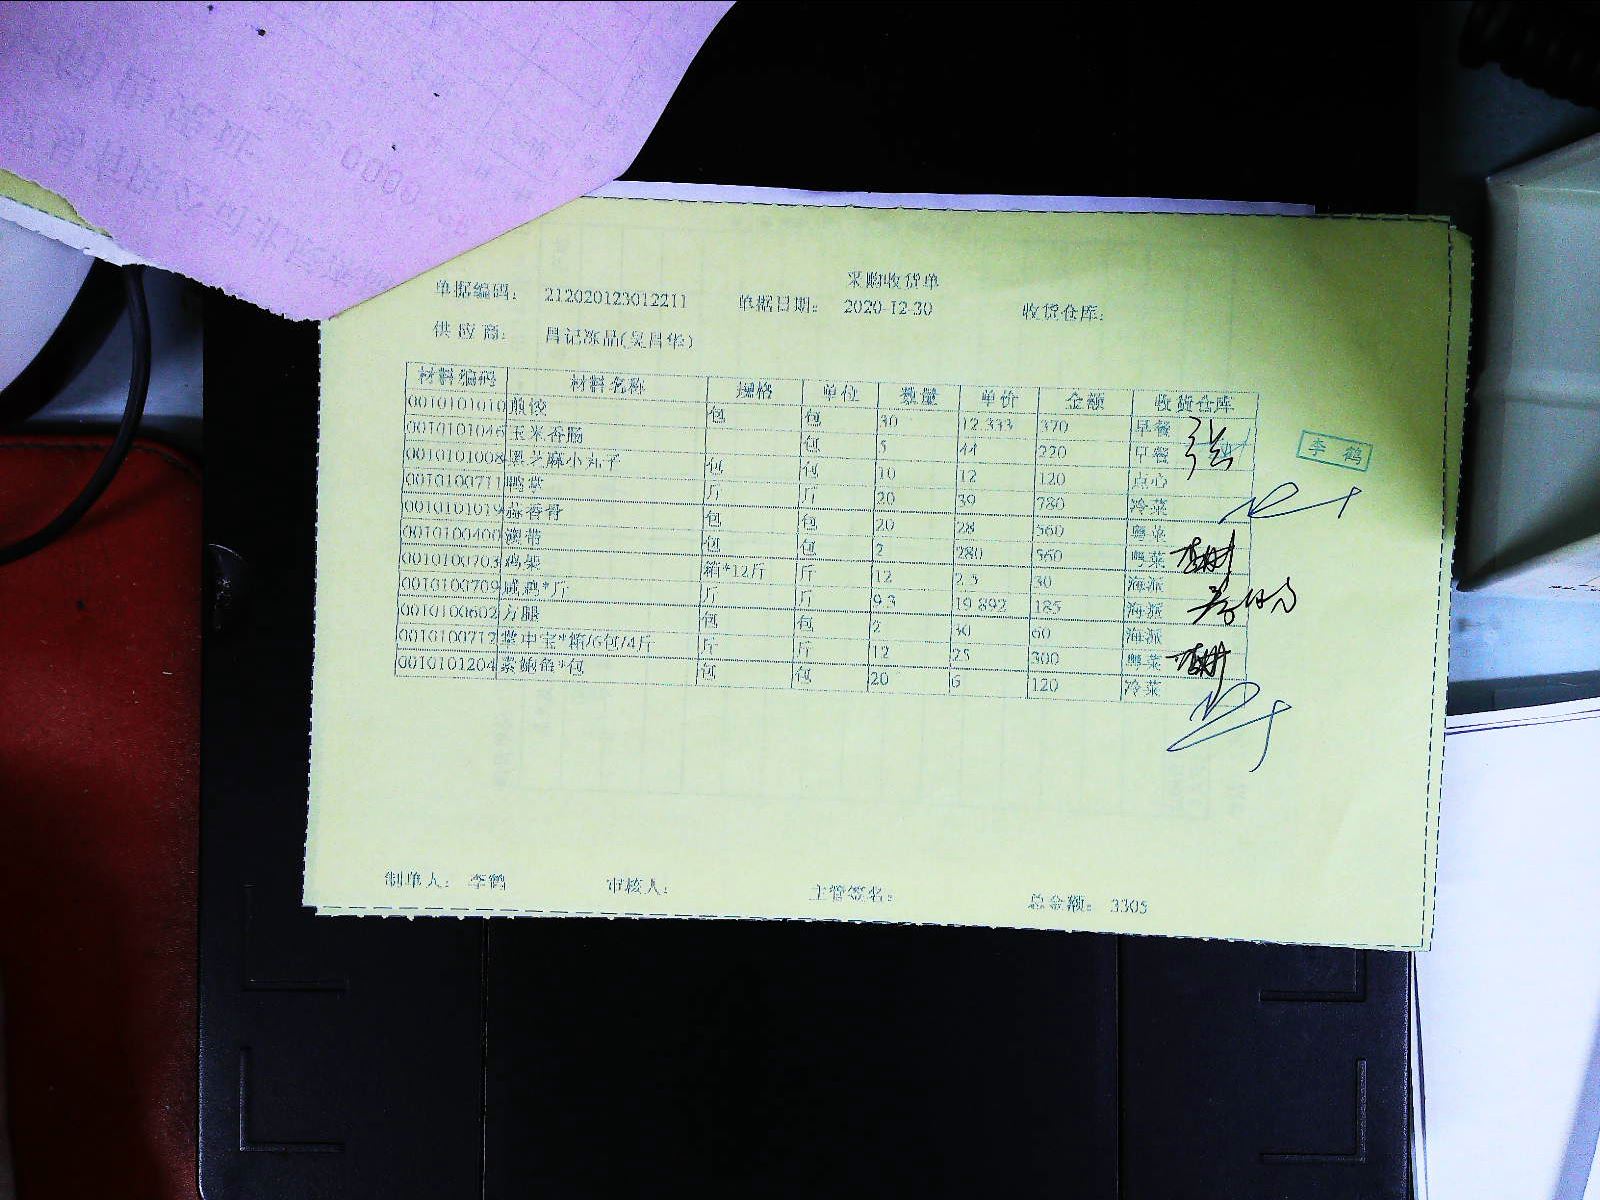 采购收货单
单据编码： 212020123012211 单据日期： 2020-12-30 收货仓库：
供 应 商： 昌记冻品(吴昌华)
材料编码 材料名称 规格 单位 数量 单价 金额 收货仓库
0010101010 煎饺 包 包 30 12.333 370 早餐
0010101046 玉米香肠 包 5 44 220 早餐
0010101008 黑芝麻小丸子 包 包 10 12 120 点心
0010100711 鸭掌 斤 斤 20 39 780 冷菜
0010101019 蒜香骨 包 包 20 28 560 粤菜
0010100400 澳带 包 包 2 280 560 粤菜
0010100703 鸡架 箱*12斤 斤 12 2.5 30 海派
0010100709 咸鸡*斤 斤 斤 9.3 19.892 185 海派
0010100602 方腿 包 包 2 30 60 海派
0010100712 掌中宝*箱/6包/4斤 斤 斤 12 25 300 粤菜
0010101204 素鲍鱼*包 包 包 20 6 120 冷菜
李鹤
制单人： 李鹤 审核人： 主管签名： 总金额： 3305